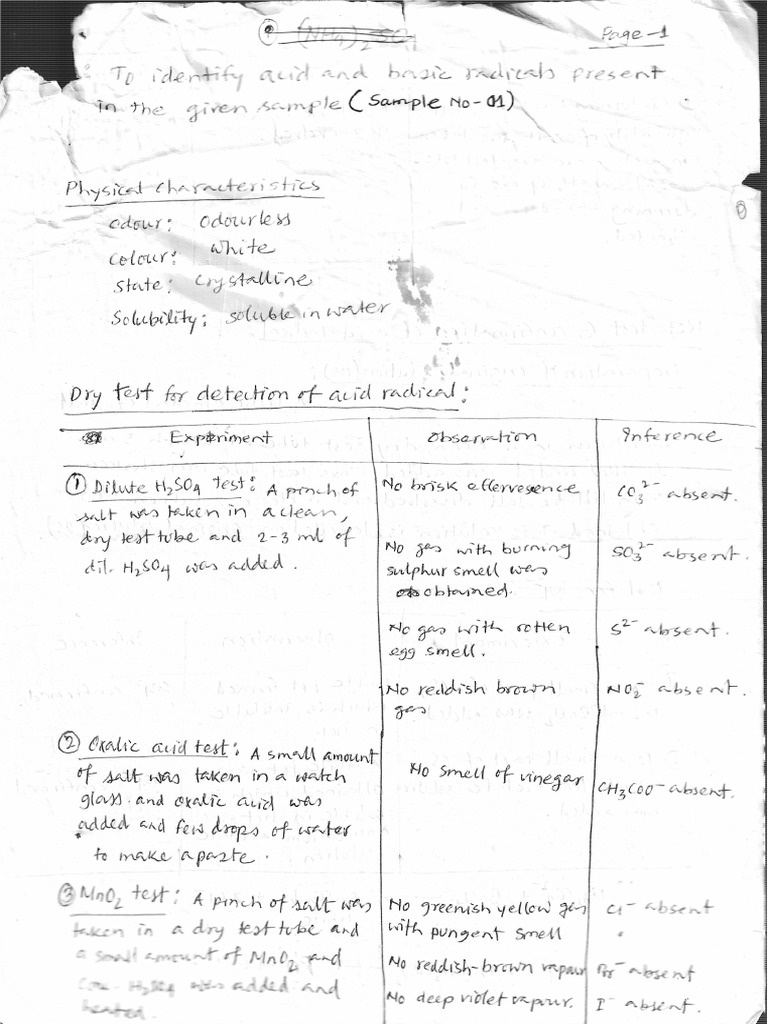 ① (NH4)2SO4
Page-1
To identify acid and basic radicals present
in the given sample (Sample No-01)
Physical characteristics
Odour: Odourless
Colour: White
State: Crystalline
Solubility: Soluble in water
Dry test for detection of acid radical:
Experiment
Observation
Inference
① Dilute H2SO4 test: A pinch of
salt was taken in a clean,
dry test tube and 2-3 ml of
dil. H2SO4 was added.
No brisk effervesence
CO3²⁻ absent.
No gas with burning
sulphur smell was
obtained.
SO3²⁻ absent.
No gas with rotten
egg smell.
S²⁻ absent.
No reddish brown
gas
NO2⁻ absent.
② Oxalic acid test: A small amount
of salt was taken in a watch
glass and oxalic acid was
added and few drops of water
to make a paste.
No smell of vinegar
CH3COO⁻ absent.
③ MnO2 test: A pinch of salt was
taken in a dry test tube and
a small amount of MnO2 and
conc. H2SO4 was added and
heated.
No greenish yellow gas
with pungent smell
Cl⁻ absent
No reddish-brown vapour
Br⁻ absent
No deep violet vapour.
I⁻ absent.